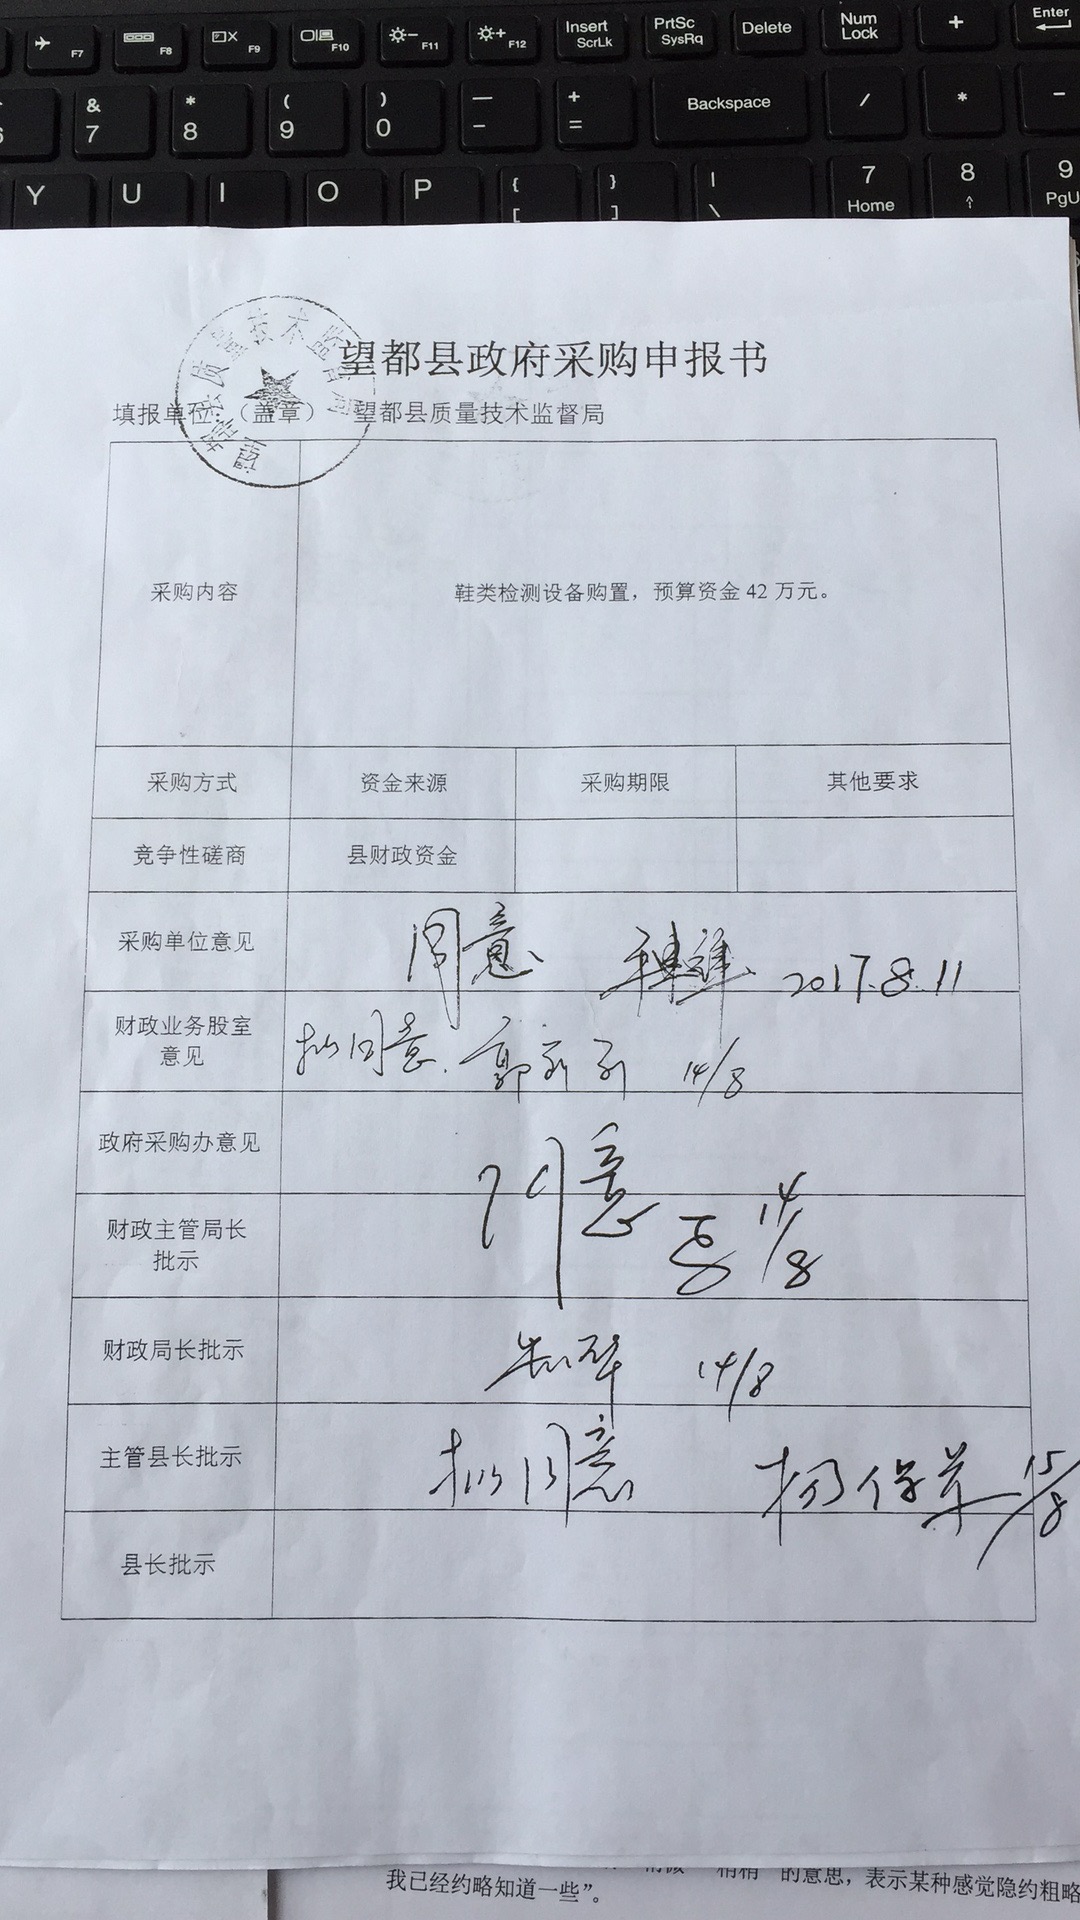 F7 F8 F9 F10 F11 F12 Insert ScrLk PrtSc SysRq Delete Num Lock + Enter
& 7 * 8 ( 9 ) 0 — - + = Backspace / * -
Y U I O P { [ } ] | \ 7 Home 8 9 PgU
望都县政府采购申报书
填报单位（盖章） 望都县质量技术监督局
望都县质量技术监督局
采购内容 鞋类检测设备购置，预算资金42万元。
采购方式 资金来源 采购期限 其他要求
竞争性磋商 县财政资金
采购单位意见 同意 2017.8.11
财政业务股室
意见 拟同意. 14/8
政府采购办意见 同意
财政主管局长
批示 14/8
财政局长批示 14/8
主管县长批示 拟同意 杨保 15/8
县长批示
的意思，表示某种感觉隐约粗略
我已经约略知道一些”。